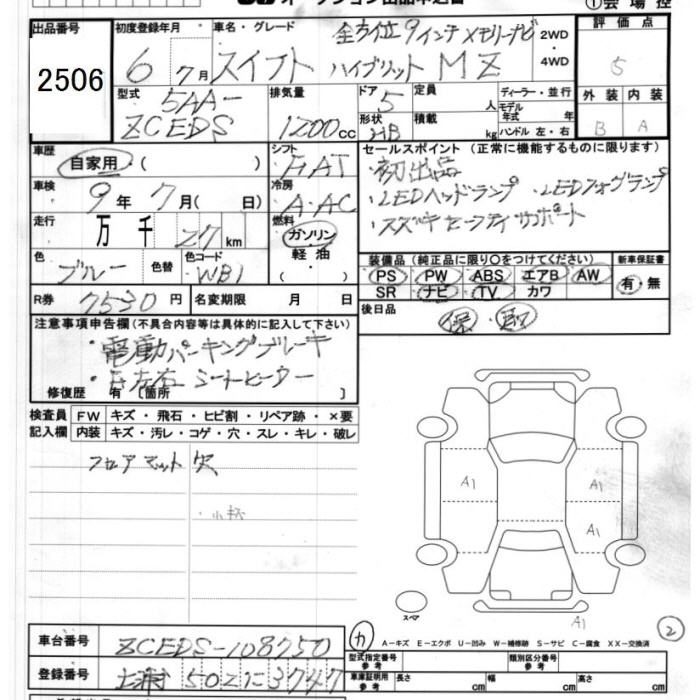 出品番号 初度登録年月 車名・グレード 全方位9インチメモリーナビ 2WD 評価点
2506 6 7月 スイフト ハイブリット MZ ・4WD 5
型式 排気量 ドア 定員 ディーラー・並行 外装 内装
5AA- 5 人 モデル年式 年
ZCEDS 1200cc 形状 HB 積載 kg ハンドル 左・右 B A
車歴 シフト セールスポイント (正常に機能するものに限ります)
自家用 ( ) FAT ・初出品
車検 9年 7月( 日) 冷房 A・AC ・LEDヘッドランプ ・LEDフォグランプ
走行 万 千 27 km 燃料 ガソリン ・スズキセーフティサポート
色 ブルー 色替 色コード WB1 軽油 ( )
装備品 (純正品に限り○をつけてください) 新車保証書
PS PW ABS エアB AW 有・無
SR ナビ TV カワ
R券 7530円 名変期限 月 日 後日品 保・取
注意事項申告欄(不具合内容等は具体的に記入して下さい)
・電動パーキングブレーキ
左右 シートヒーター
修復歴 有 〔箇所 〕
検査員 FW キズ・飛石・ヒビ割・リペア跡・×要
記入欄 内装 キズ・汚レ・コゲ・穴・スレ・キレ・破レ
フロアマット 穴
A1 A1
A1
スペア
A1
カ 2
A-キズ E-エクボ U-凹み W-補修跡 S-サビ C-腐食 XX-交換済
車台番号 ZCEDS-108750 型式指定番号 参考 類別区分番号 参考
登録番号 土浦 502 に 3747 車庫証明用 参考 長さ cm 幅 cm 高さ cm